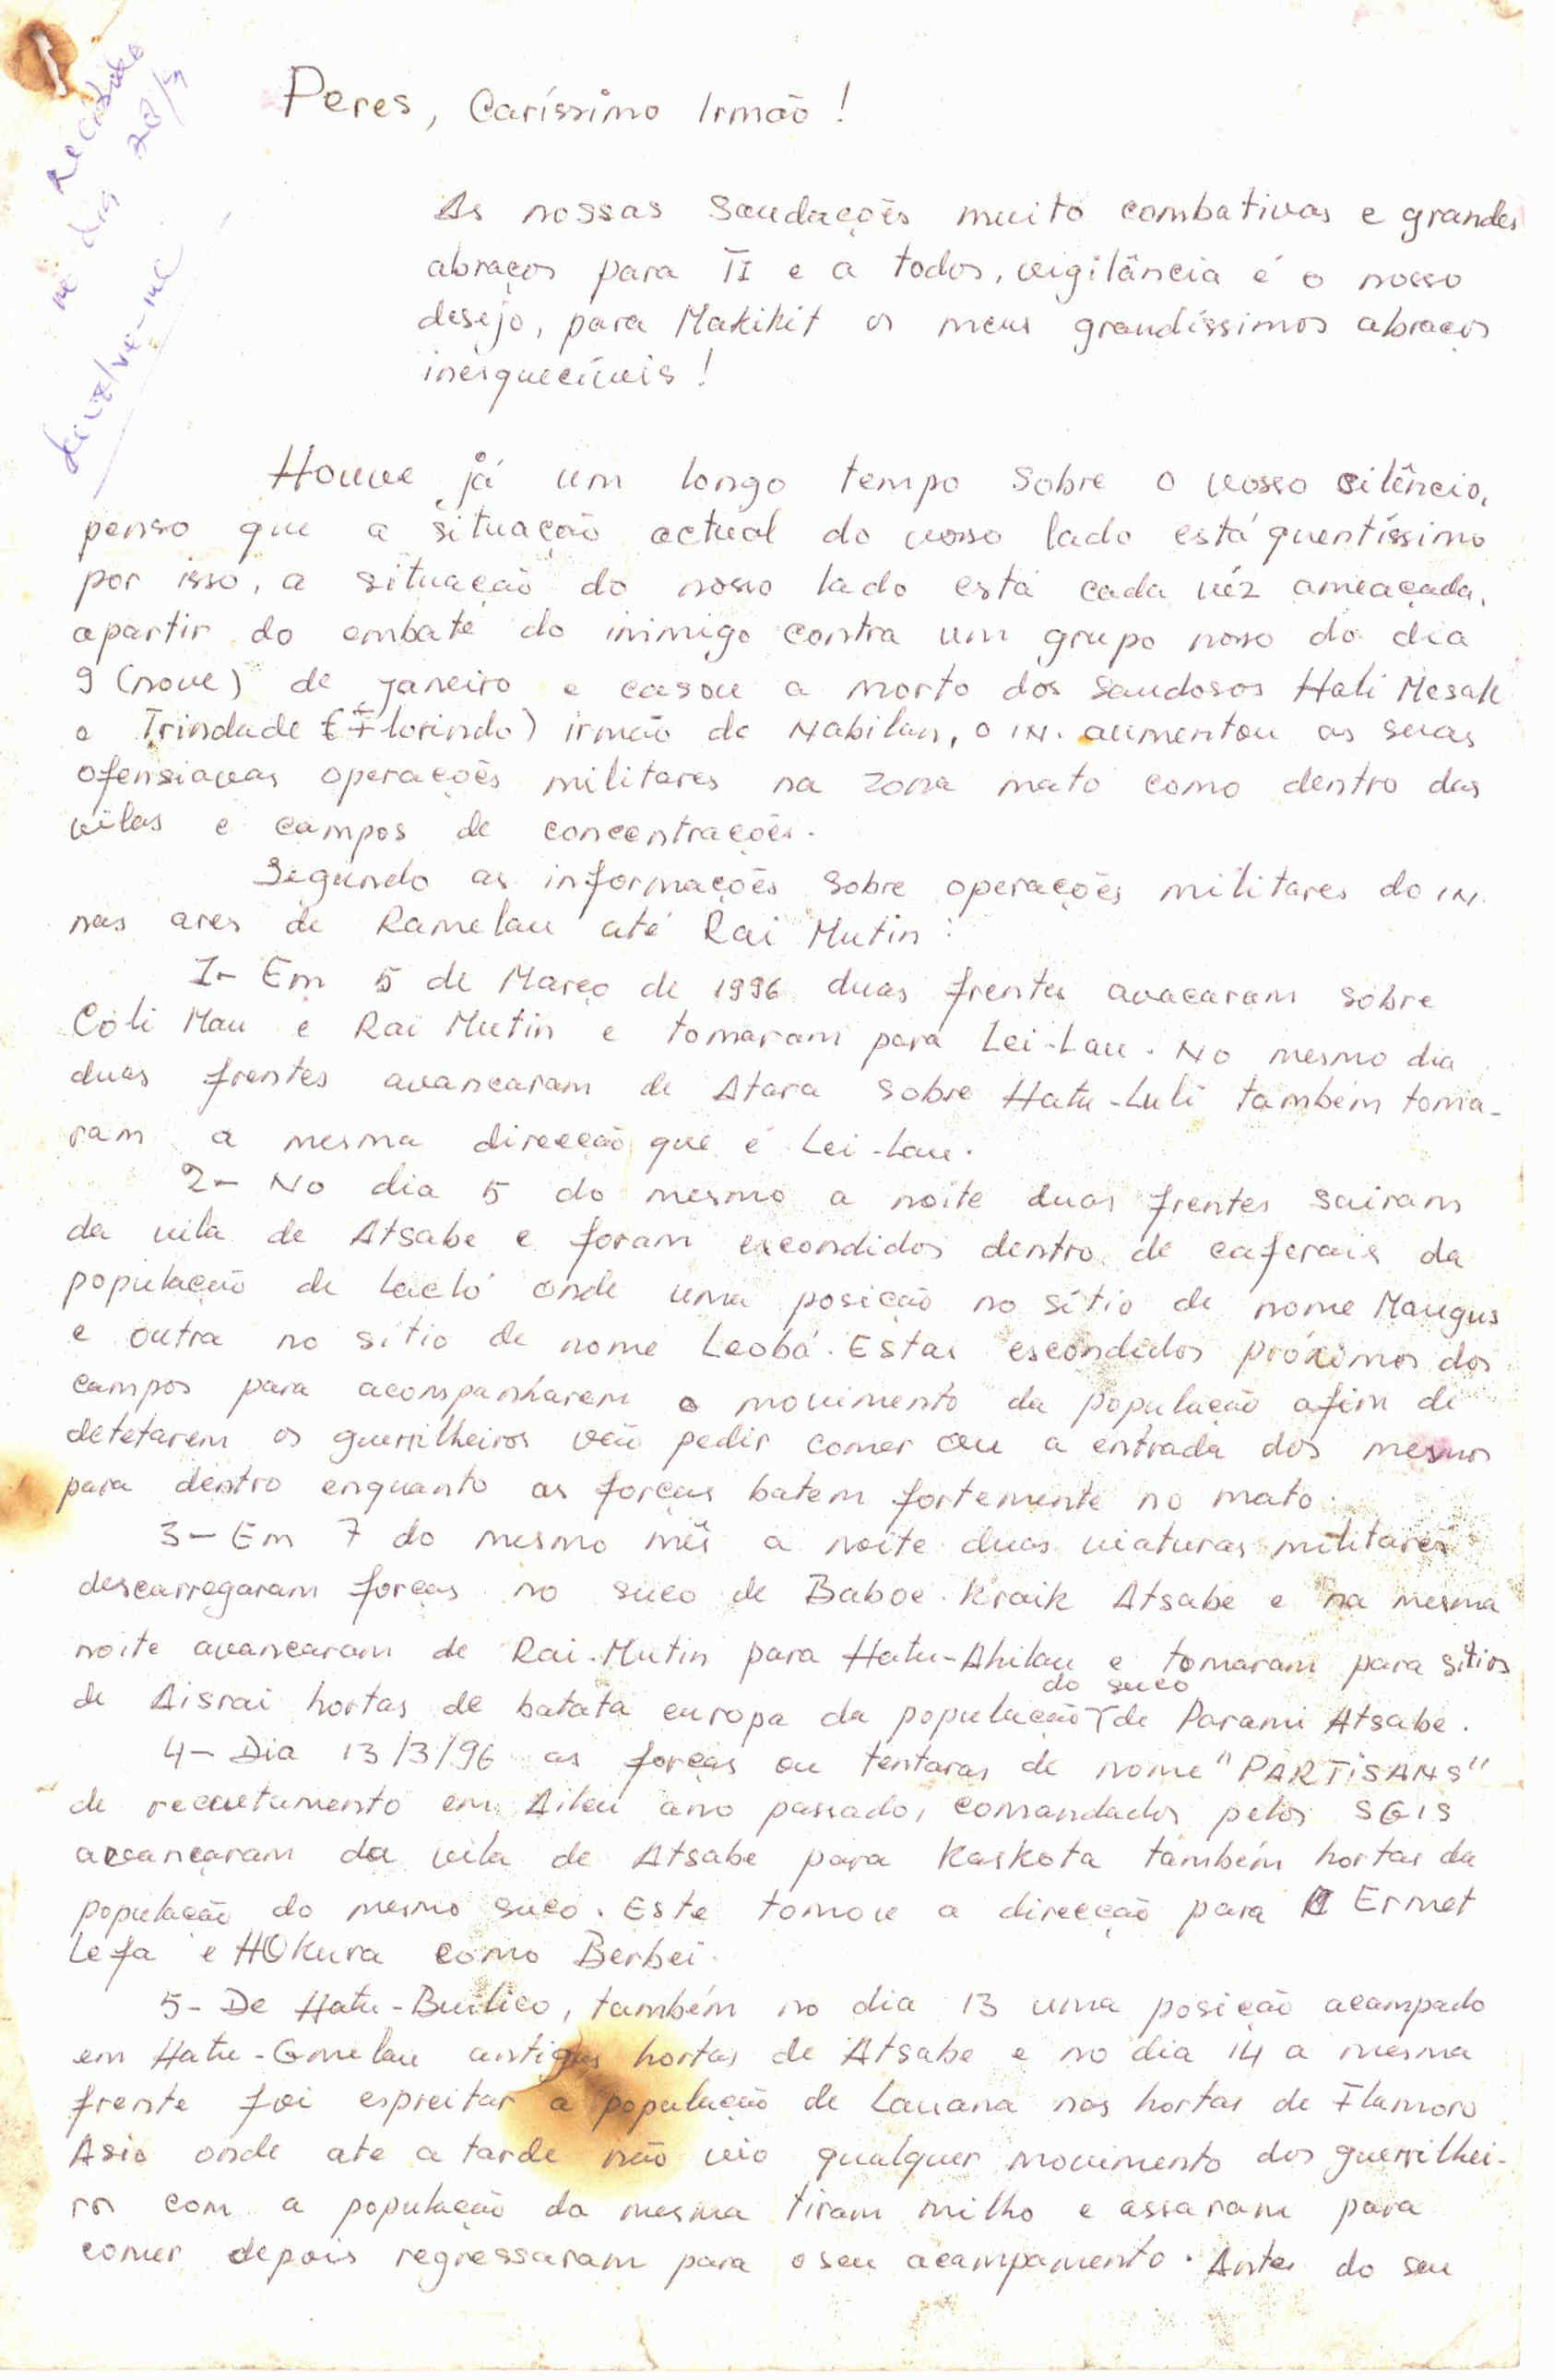 recebido
no dia 28/9
devolve-me
Peres, Caríssimo Irmão!
As nossas Saudações muito combativas e grandes
abraços para TI e a todos, vigilância é o nosso
desejo, para Makikit os meus grandíssimos abraços
inesquecíveis!
Houve já um longo tempo sobre o vosso silêncio,
penso que a situação actual do vosso lado está quentíssimo
por isso, a situação do nosso lado está cada véz ameaçada,
apartir do embate do inimigo contra um grupo nosso do dia
9 (nove) de janeiro e casou a morto dos saudosos Hali Mesak
e Trindade (Florindo) irmão de Nabilan, o IN. aumentou as suas
ofensiavas operações militares na zona mato como dentro das
vilas e campos de concentrações.
Segundo as informações sobre operações militares do IN.
nas ares de Ramelau até Rai Mutin:
1- Em 5 de Março de 1996 duas frentes avacaram sobre
Coli Mau e Rai Mutin e tomaram para Lei-Lau. No mesmo dia
duas frentes avancaram de Atara sobre Hatu-Luli também toma-
ram a mesma direcção que é Lei-Lau.
2- No dia 5 do mesmo a noite duas frentes sairam
da vila de Atsabe e foram escondidos dentro de caferais da
população de Lacló onde uma posição no sítio de nome Maugus
e outra no sítio de nome Leobá. Estas escondidos próximos dos
campos para acompanharem o movimento da população afim de
detetarem os guerrilheiros vão pedir comer ou a entrada dos mesmos
para dentro enquanto as forças batem fortemente no mato.
3- Em 7 do mesmo mês a noite duas viaturas militares
descarregaram forças no suco de Baboe-Kraik Atsabe e na mesma
noite avancaram de Rai-Mutin para Hatu-Ahilau e tomaram para sítios
de Aisrai hortas de batata europa da população do suco de Parami Atsabe.
4- Dia 13/3/96 as forças ou tentaras de nome "PARTISANS"
de recrutamento em Aileu ano passado, comandados pelos SGIS
avançaram da vila de Atsabe para Kaskota também hortas da
população do mesmo suco. Este tomou a direcção para Ermet
Lefa e HOkura como Berbei.
5- De Hatu-Builico, também no dia 13 uma posição acampado
em Hatu-Gmelau antigas hortas de Atsabe e no dia 14 a mesma
frente foi espreitar a população de Lauana nas hortas de Flamoro
Asio onde ate a tarde não vio qualquer movimento dos guerrilhei-
ros com a população da mesma tiram milho e assaram para
comer depois regressaram para o seu acampamento. Antes do seu